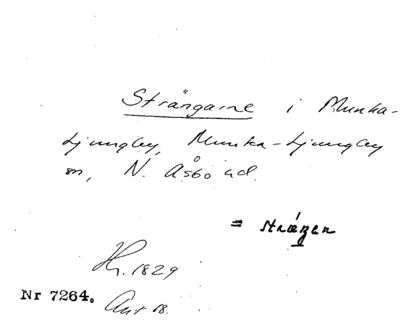 Strängarne i Munka-
Ljungby, Munka-Ljungby
sn, N. Åsbo hd.
= strängen
H. 1829
Nr 7264. Ant 18.